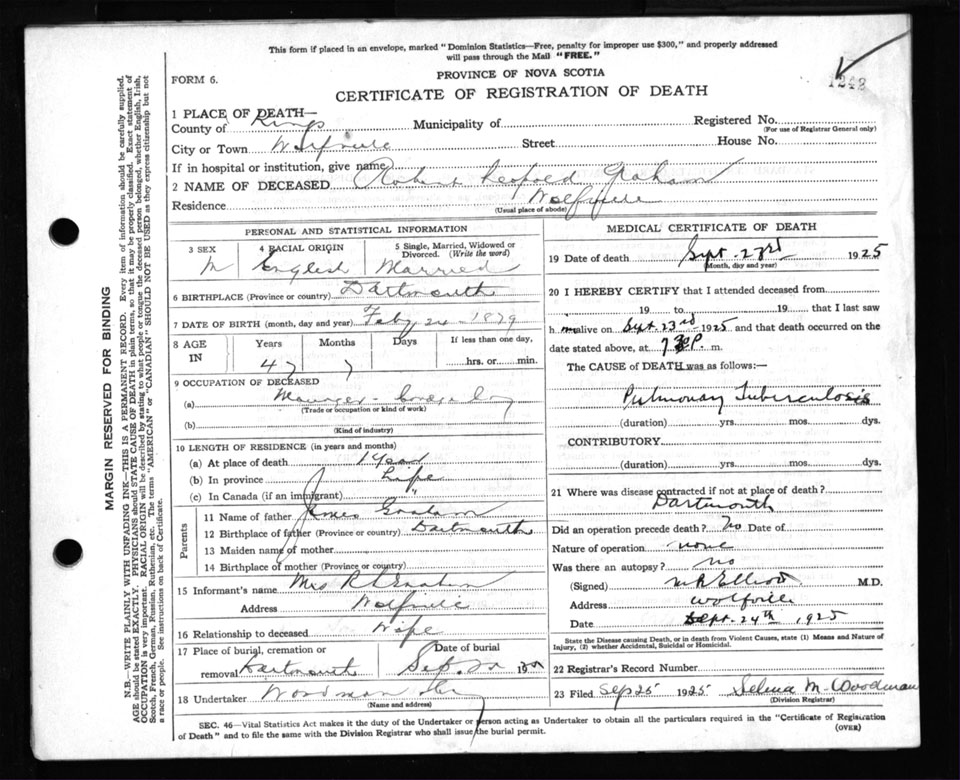 This form if placed in an envelope, marked "Dominion Statistics—Free, penalty for improper use $300," and properly addressed
will pass through the Mail "FREE."
FORM 6.
PROVINCE OF NOVA SCOTIA
1242
CERTIFICATE OF REGISTRATION OF DEATH
1 PLACE OF DEATH—
County of Kings Municipality of Registered No.
(For use of Registrar General only)
City or Town Wolfville Street House No.
If in hospital or institution, give name
2 NAME OF DECEASED Robert Leopold Graham
Residence Wolfville
(Usual place of abode)
PERSONAL AND STATISTICAL INFORMATION
3 SEX 4 RACIAL ORIGIN 5 Single, Married, Widowed or Divorced. (Write the word)
M English Married
6 BIRTHPLACE (Province or country) Dartmouth
7 DATE OF BIRTH (month, day and year) Feby 24 - 1879
8 AGE IN Years Months Days If less than one day,
47 7 hrs. or min.
9 OCCUPATION OF DECEASED
(a) Manager
(Trade or occupation or kind of work)
(b)
(Kind of industry)
10 LENGTH OF RESIDENCE (in years and months)
(a) At place of death 1 Year
(b) In province Life
(c) In Canada (if an immigrant) "
Parents
11 Name of father James Graham
12 Birthplace of father (Province or country) Dartmouth
13 Maiden name of mother
14 Birthplace of mother (Province or country)
15 Informant's name Mrs R L Graham
Address Wolfville
16 Relationship to deceased Wife
17 Place of burial, cremation or removal Dartmouth Date of burial Sep. 19
18 Undertaker Woodman
(Name and address)
MEDICAL CERTIFICATE OF DEATH
19 Date of death Sept. 23rd 1925
(Month, day and year)
20 I HEREBY CERTIFY that I attended deceased from
19 to 19 that I last saw
him alive on Sept. 23rd 1925 and that death occurred on the
date stated above, at 7.30 P. m.
The CAUSE of DEATH was as follows:
Pulmonary Tuberculosis
(duration) yrs. mos. dys.
CONTRIBUTORY
(duration) yrs. mos. dys.
21 Where was disease contracted if not at place of death?
Dartmouth
Did an operation precede death? No Date of
Nature of operation none
Was there an autopsy? no
(Signed) M R Elliott M.D.
Address Wolfville
Date Sept. 24th 1925
State the Disease causing Death, or in death from Violent Causes, state (1) Means and Nature of
Injury, (2) whether Accidental, Suicidal or Homicidal.
22 Registrar's Record Number
23 Filed Sep 25 1925 Selina M. Woodman
(Division Registrar)
SEC. 46—Vital Statistics Act makes it the duty of the Undertaker or person acting as Undertaker to obtain all the particulars required in the "Certificate of Registration
of Death" and to file the same with the Division Registrar who shall issue the burial permit.
(OVER)
MARGIN RESERVED FOR BINDING
N.B.—WRITE PLAINLY WITH UNFADING INK—THIS IS A PERMANENT RECORD. Every item of information should be carefully supplied.
AGE should be stated EXACTLY. PHYSICIANS should STATE CAUSE OF DEATH in plain terms, so that it may be properly classified. Exact statement of
OCCUPATION is very important. RACIAL ORIGIN will be described by stating to what people or tongue the deceased person belonged, whether English, Irish,
Scotch, French, German, Russian, Ruthenian, etc. The terms "AMERICAN" or "CANADIAN" SHOULD NOT BE USED as they express citizenship but not
a race or people. See instructions on back of Certificate.